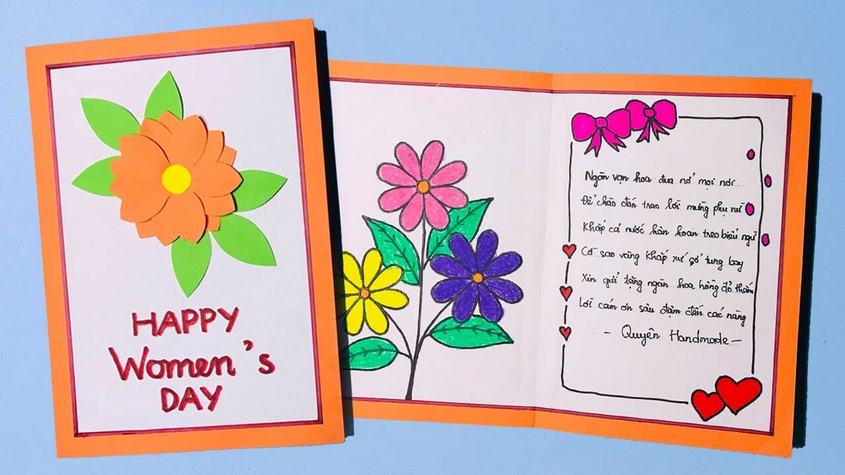 HAPPY
Women's
DAY
Ngàn vạn hoa đua nở mọi nơi
Để chào đón trao lời mừng phụ nữ
Khắp cả nước hân hoan treo biểu ngữ
Cờ sao vàng khắp xứ sở tung bay
Xin gửi tặng ngàn hoa hồng đỏ thắm
Lời cám ơn sâu đậm đến các nàng
- Quyên Handmade -